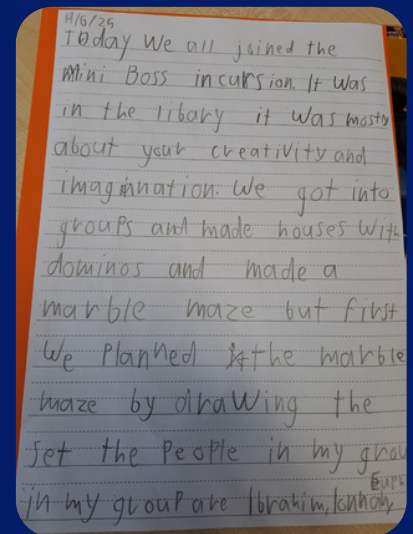 11/6/25
Today We all joined the
Mini Boss incursion. It was
in the libary it was mosty
about your creativity and
imaginnation. We got into
groups and made houses with
dominos and made a
marble maze but first
We planned the marble
maze by drawing the
set the people in my grou
in my group are Ibrahim,